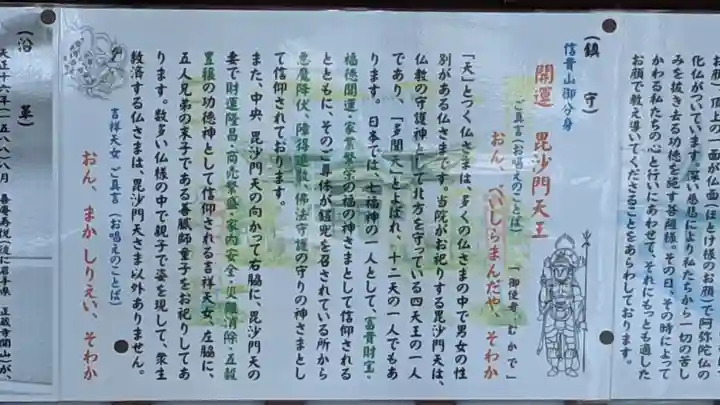 お顔）頂上の一面が仏面（ほとけ様のお顔）で阿弥陀仏の
化仏がついています。深い慈悲により私たちから一切の苦し
みを抜き去る功徳を施す菩薩様。その日、その時によって
かわる私たちの心と行いにあわせて、それにもっとも適した
お顔で教え導いてくださることをあらわしております。
（鎮守）
信貴山御分身
開運 毘沙門天王
「御使者 むかで」
ご真言（お唱えのことば）
おん、べいしらまんだや、そわか
「天」とつく仏さまは、多くの仏さまの中で男女の性
別がある仏さまです。当院がお祀りする毘沙門天は、
仏教の守護神として北方を守っている四天王の一人
であり、「多聞天」とよばれ、十二天の一人でもあ
ります。日本では、七福神の一人として、富貴財宝・
福徳開運・家業繁栄の福の神さまとして信仰される
とともに、そのご尊体が鎧兜を召されている所から
悪魔降伏、障碍退散、佛法守護の守りの神さまとし
て信仰されております。
また、中央 毘沙門天の向かって右脇に、毘沙門天の
妻で財運隆昌・商売繁盛・家内安全・災難消除・五穀
豊穣の功徳神として信仰される吉祥天女、左脇に、
五人兄弟の末子である善膩師童子をお祀りしてあ
ります。数多い仏様の中で親子で姿を現して、衆生
救済する仏さまは、毘沙門天さま以外ありません。
吉祥天女 ご真言（お唱えのことば）
おん、まかしりえい、そわか
（沿革）
天正十六年（一五八八）八月